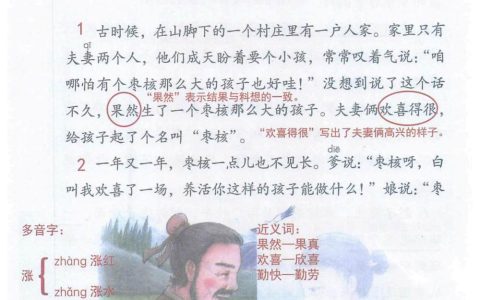 1 古时候，在山脚下的一个村庄里有一户人家。家里只有
qī
夫妻两个人，他们成天盼着要个小孩，常常叹着气说：“咱
哪怕有个枣核那么大的孩子也好哇！”没想到说了这个话
“果然”表示结果与料想的一致。
不久，果然生了一个枣核那么大的孩子。夫妻俩欢喜得很，
给孩子起了个名叫“枣核”。
“欢喜得很”写出了夫妻俩高兴的样子。
diē
2 一年又一年，枣核一点儿也不见长。爹说：“枣核呀，白
叫我欢喜了一场，养活你这样的孩子能做什么！”娘说：“枣
多音字：
涨
zhàng 涨红
zhǎng 涨水
近义词：
果然—果真
欢喜—欣喜
勤快—勤劳